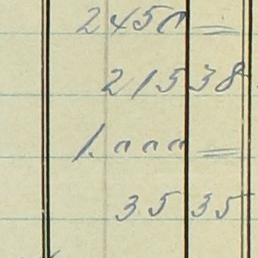 2450 =
215 38
1.000 =
35 35